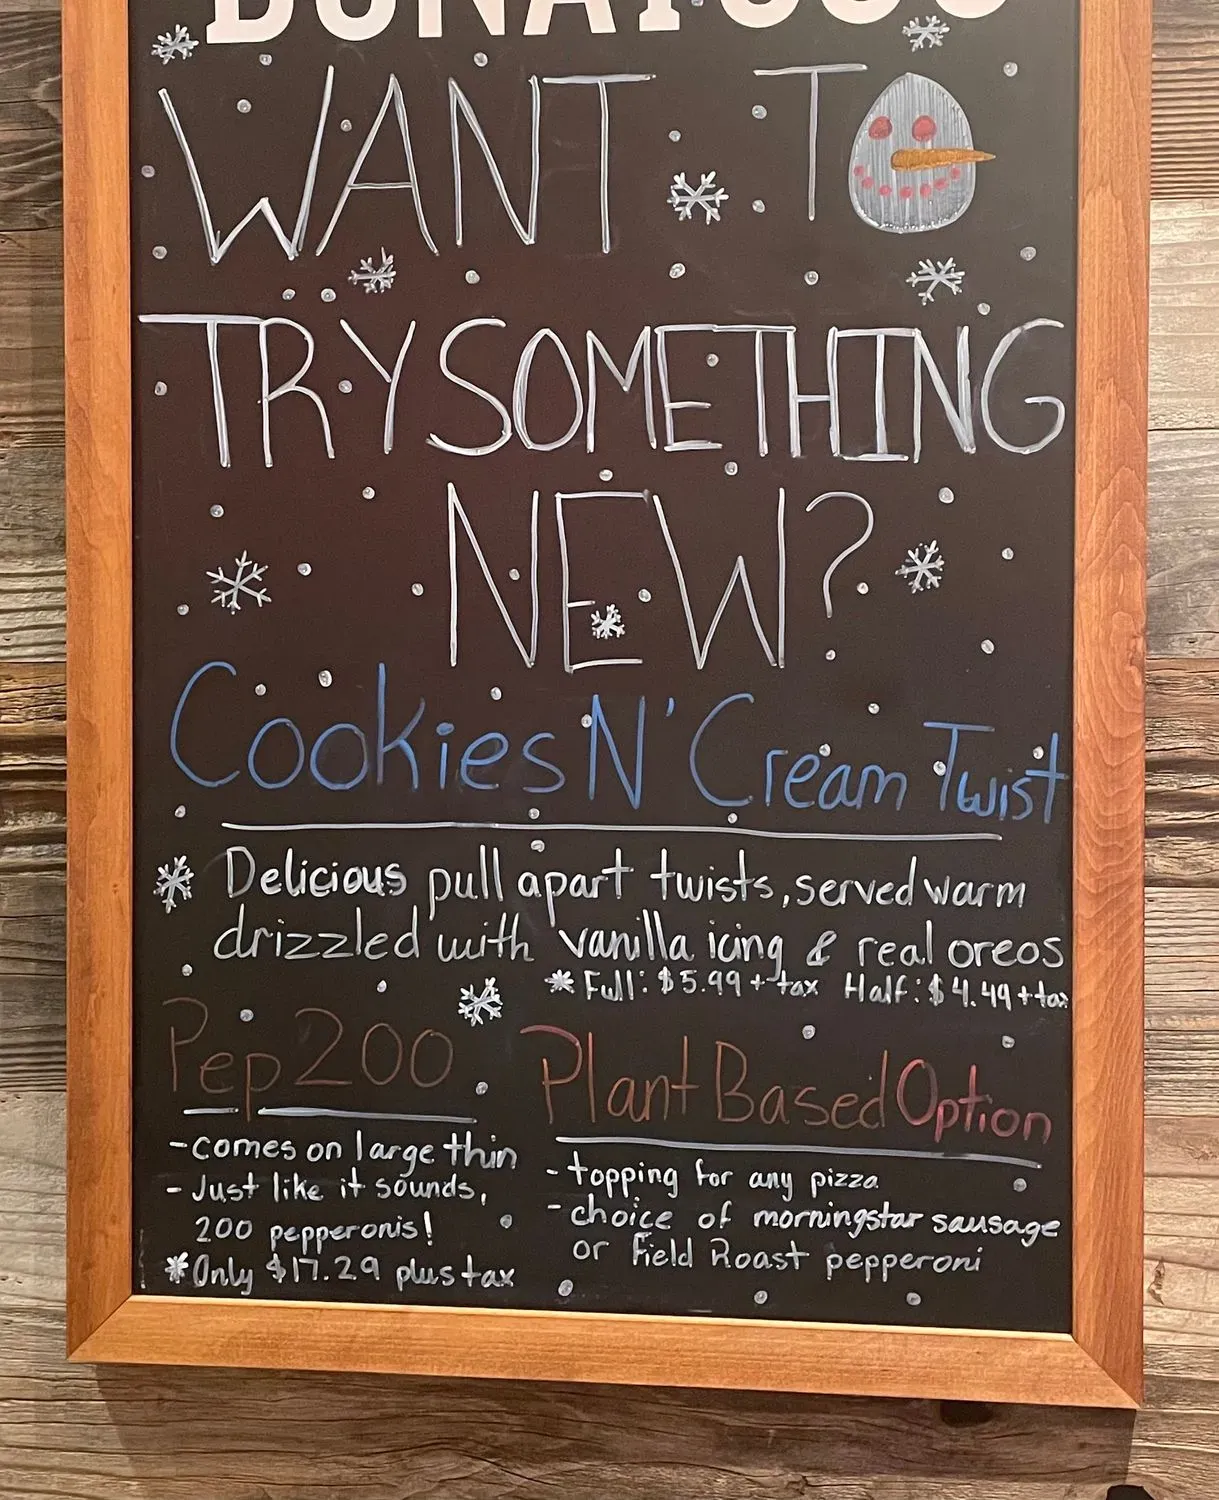 DONATOS®
WANT TO
TRY SOMETHING
NEW?
Cookies N' Cream Twist
Delicious pull apart twists, served warm
drizzled with vanilla icing & real oreos
* Full: $5.99 + tax Half: $4.49 + tax
Pep 200
-comes on large thin
- Just like it sounds,
200 pepperonis!
* Only $17.29 plus tax
Plant Based Option
- topping for any pizza
- choice of morningstar sausage
or Field Roast pepperoni